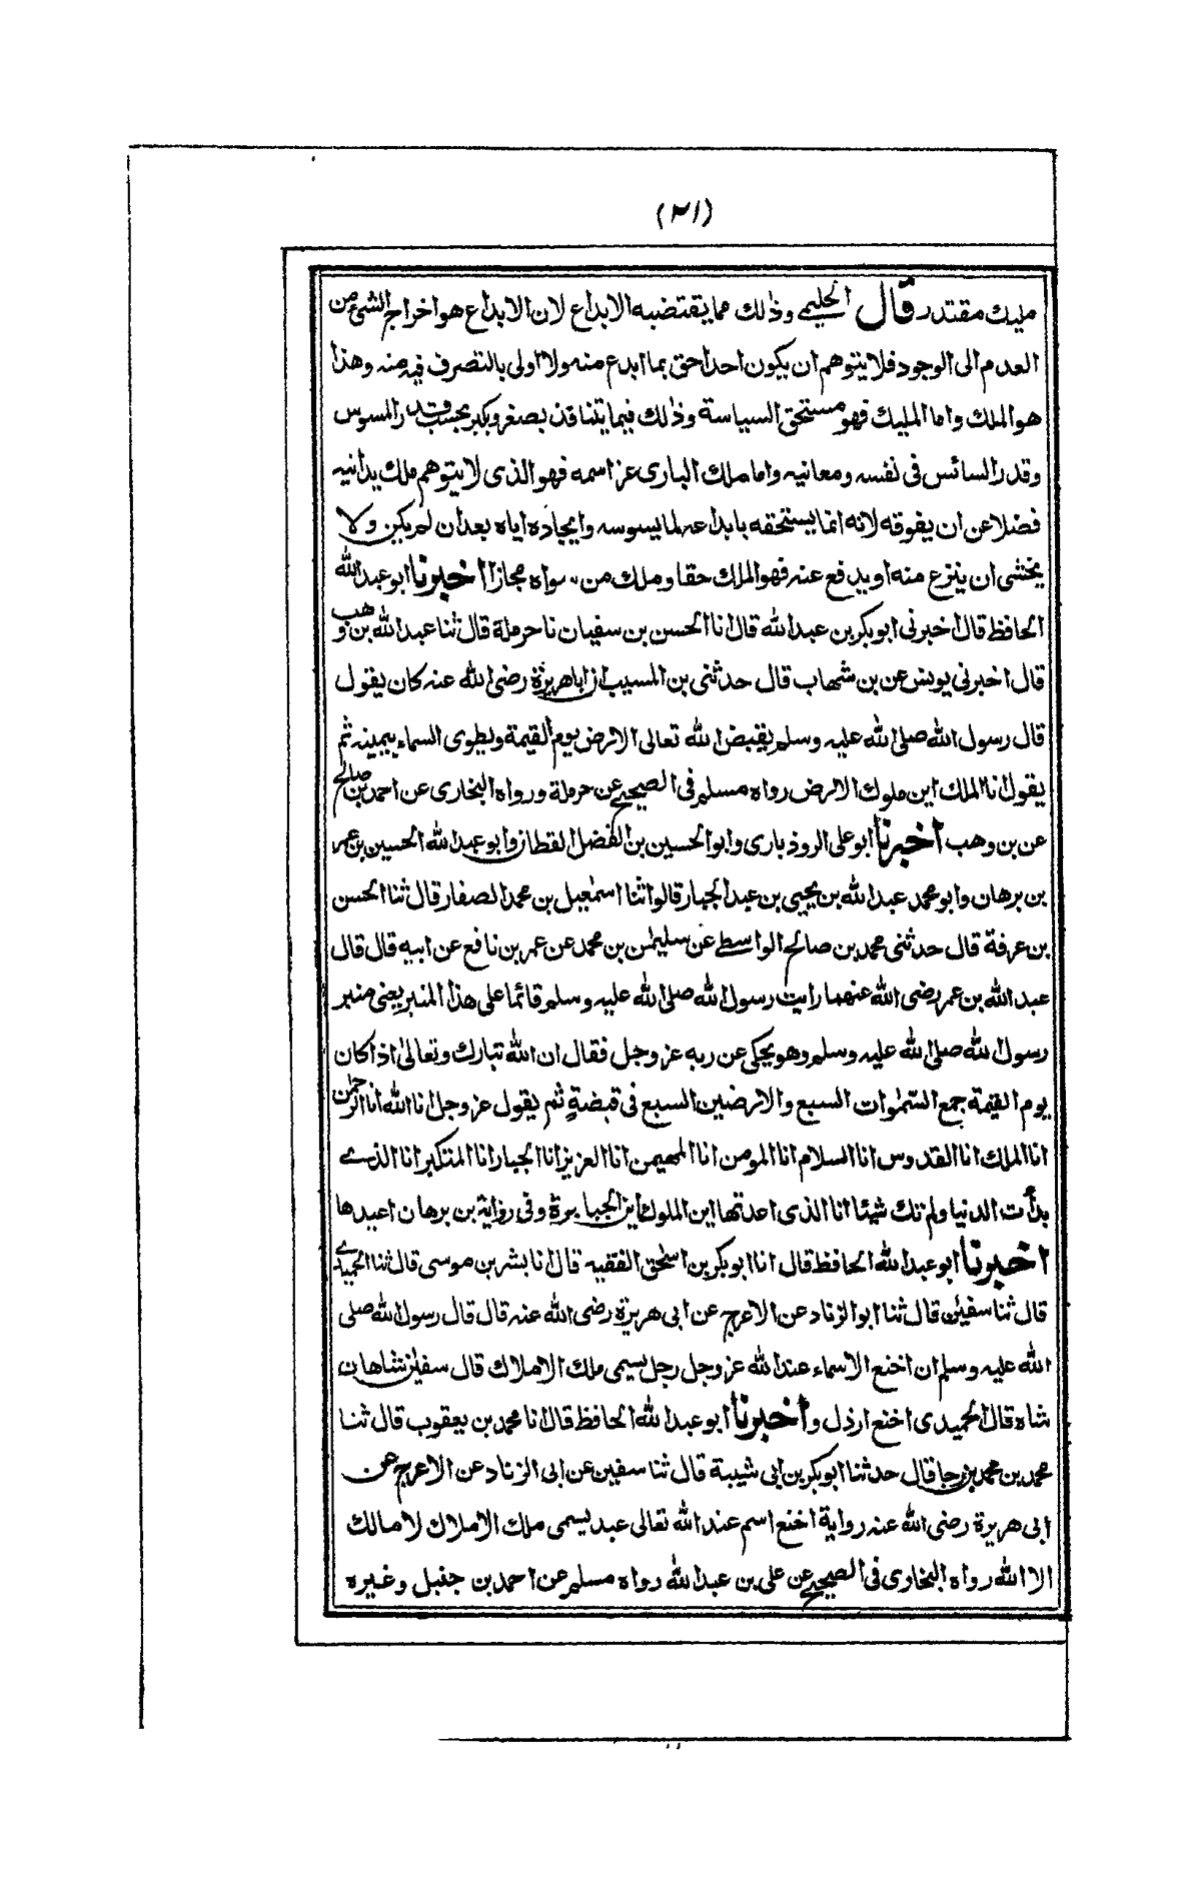 (٢١)
مليك مقتدر قال الحليمى وذلك مما يقتضيه الابداع لان الابداع هو اخراج الشئ من
العدم الى الوجود فلا يتوهم ان يكون احد احق بما ابدع منه ولا اولى بالتصرف فيه منه وهذا
هو الملك واما المليك فهو مستحق السياسة وذلك فيما بيننا قد يصغر ويكبر بحسب قدر المسوس
وقدر السائس فى نفسه ومعانيه واما ملك البارى عز اسمه فهو الذى لا يتوهم ملك يدانيه
فضلا عن ان يفوقه لانه انما يستحقه بابداعه لما يسوسه وايجاده اياه بعد ان لم يكن ولا
يخشى ان ينزع منه او يدفع عنه فهو الملك حقا وملك من سواه مجازا اخبرنا ابو عبد الله
الحافظ قال اخبرنى ابو بكر بن عبد الله قال انا الحسن بن سفيان نا حرملة قال ثنا عبد الله بن وهب
قال اخبرنى يونس عن بن شهاب قال حدثنى بن المسيب ان ابا هريرة رضى الله عنه كان يقول
قال رسول الله صلى الله عليه وسلم يقبض الله تعالى الارض يوم القيمة ويطوى السماء بيمينه ثم
يقول انا الملك اين ملوك الارض رواه مسلم فى الصحيح عن حرملة ورواه البخارى عن احمد بن صالح
عن بن وهب اخبرنا ابو على الروذبارى وابو الحسين بن الفضل القطان وابو عبد الله الحسين بن عمر
بن برهان وابو محمد عبد الله بن يحيى بن عبد الجبار قالوا ثنا اسمٰعيل بن محمد الصفار قال ثنا الحسن
بن عرفة قال حدثنى محمد بن صالح الواسطى عن سليمٰن بن محمد عن عمر بن نافع عن ابيه قال قال
عبد الله بن عمر رضى الله عنهما رايت رسول الله صلى الله عليه وسلم قائما على هذا المنبر يعنى منبر
رسول الله صلى الله عليه وسلم وهو يحكى عن ربه عز وجل فقال ان الله تبارك وتعالىٰ اذا كان
يوم القيمة جمع السمٰوات السبع والارضين السبع فى قبضةٍ ثم يقول عز وجل انا الله انا الرحمٰن
انا الملك انا القدوس انا السلام انا المومن انا المهيمن انا العزيز انا الجبار انا المتكبر انا الذى
بدأت الدنيا ولم تك شيئا انا الذى اعدتها اين الملوك اين الجبابرة وفى رواية بن برهان اعيدها
اخبرنا ابو عبد الله الحافظ قال انا ابو بكر بن اسحٰق الفقيه قال انا بشر بن موسى قال ثنا الحميدى
قال ثنا سفيٰن قال ثنا ابو الزناد عن الاعرج عن ابى هريرة رضى الله عنه قال قال رسول الله صلى
الله عليه وسلم ان اخنع الاسماء عند الله عز وجل رجل يسمى ملك الاملاك قال سفيٰن شاهان
شاه قال الحميدى اخنع ارذل و اخبرنا ابو عبد الله الحافظ قال انا محمد بن يعقوب قال ثنا
محمد بن محمد بن رجا قال حدثنا ابو بكر بن ابى شيبة قال ثنا سفين عن ابى الزناد عن الاعرج عن
ابى هريرة رضى الله عنه رواية اخنع اسم عند الله تعالى عبد يسمى ملك الاملاك لا مالك
الا الله رواه البخارى فى الصحيح عن على بن عبد الله رواه مسلم عن احمد بن حنبل وغيره